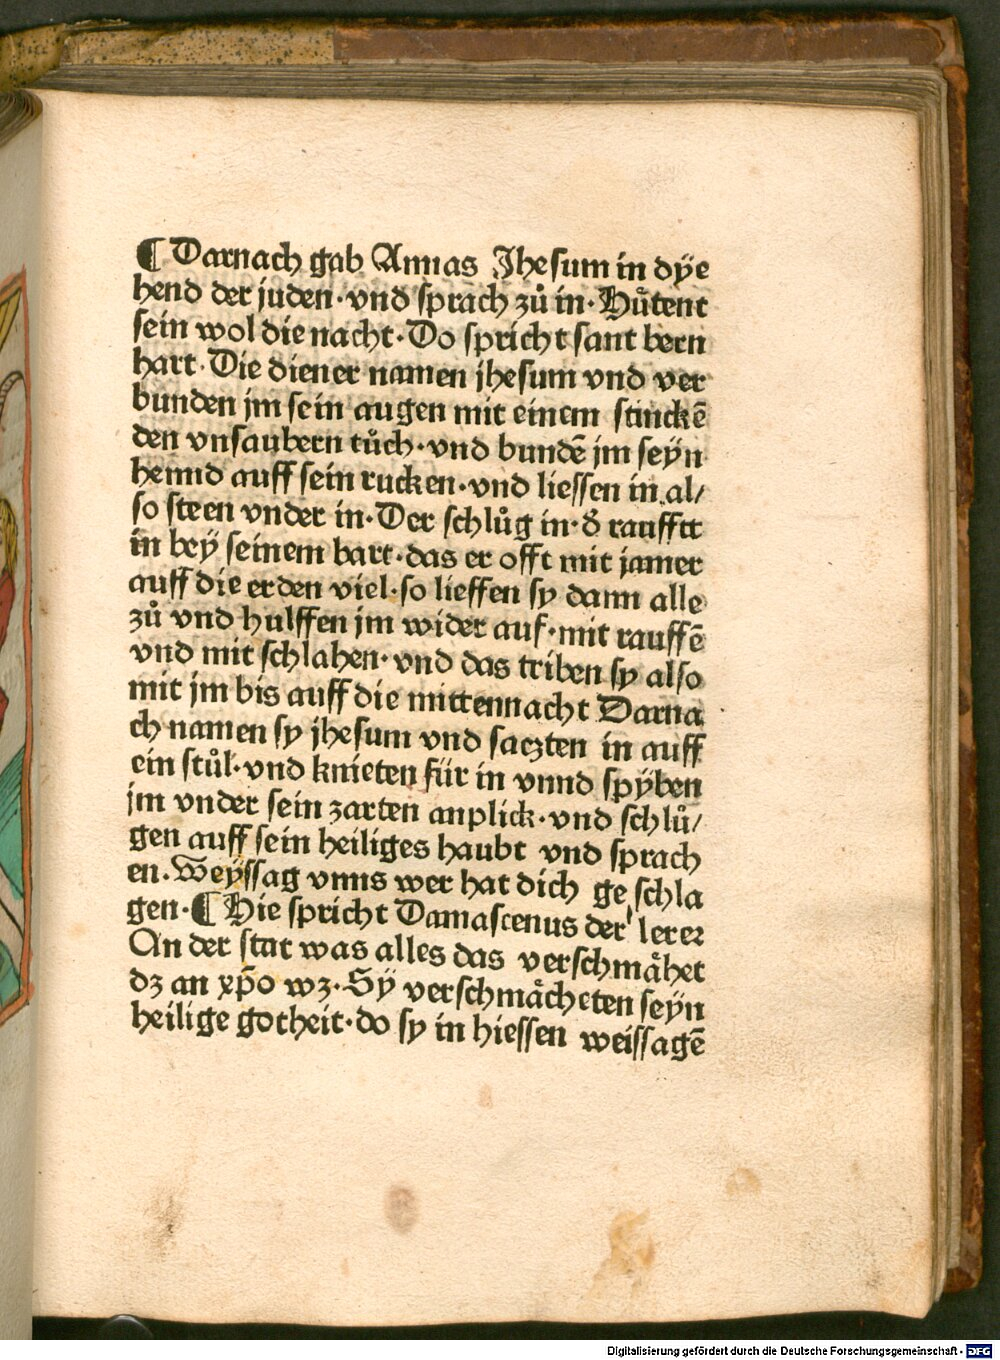 ¶ Darnach gab Annas Jhesum in dÿe
hend der juden · vnd sprach zů in · Hůtent
sein wol die nacht · Do spricht sant bern
hart · Die diener namen jhesum vnd ver
bunden jm sein augen mit einem stinckē
den vnsaubern tůch · vnd bundē jm seÿn
hemd auff sein rucken · vnd liessen in al/
so steen vnder in · Der schlůg in · d̕ raufftt
in beÿ seinem bart · das er offt mit jamer
auff die erden viel · so lieffen sy dann alle
zů vnd hulffen jm wider auf · mit rauffē
vnd mit schlahen · vnd das triben sy also
mit jm bis auff die mittennacht Darna
ch namen sy jhesum vnd saczten in auff
ein stůl · vnd knieten für in vnnd spÿben
jm vnder sein zarten anplick · vnd schlů/
gen auff sein heiliges haubt vnd sprach
en · Weÿssag vnns wer hat dich ge schla
gen · ¶ Hie spricht Damascenus der lerer
An der stat was alles das verschmåhet
dz an xp̄o wz · Sÿ verschmåcheten seÿn
heilige gotheit · do sy in hiessen weissagē
Digitalisierung gefördert durch die Deutsche Forschungsgemeinschaft - DFG